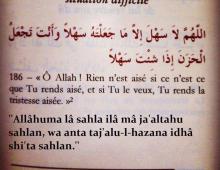 situation difficile
اللَّهُمَّ لَا سَهْلَ إِلَّا مَا جَعَلْتَهُ سَهْلاً وَأَنْتَ تَجْعَلُ
الْحَزَنَ إِذَا شِئْتَ سَهْلاً
186 – « Ô Allah ! Rien n'est aisé si ce n'est ce
que Tu rends aisé, et si Tu le veux, Tu rends la
tristesse aisée. »²
"Allâhuma lâ sahla ilâ mâ ja'altahu
sahlan, wa anta taj'alu-l-hazana idhâ
shi'ta sahlan."